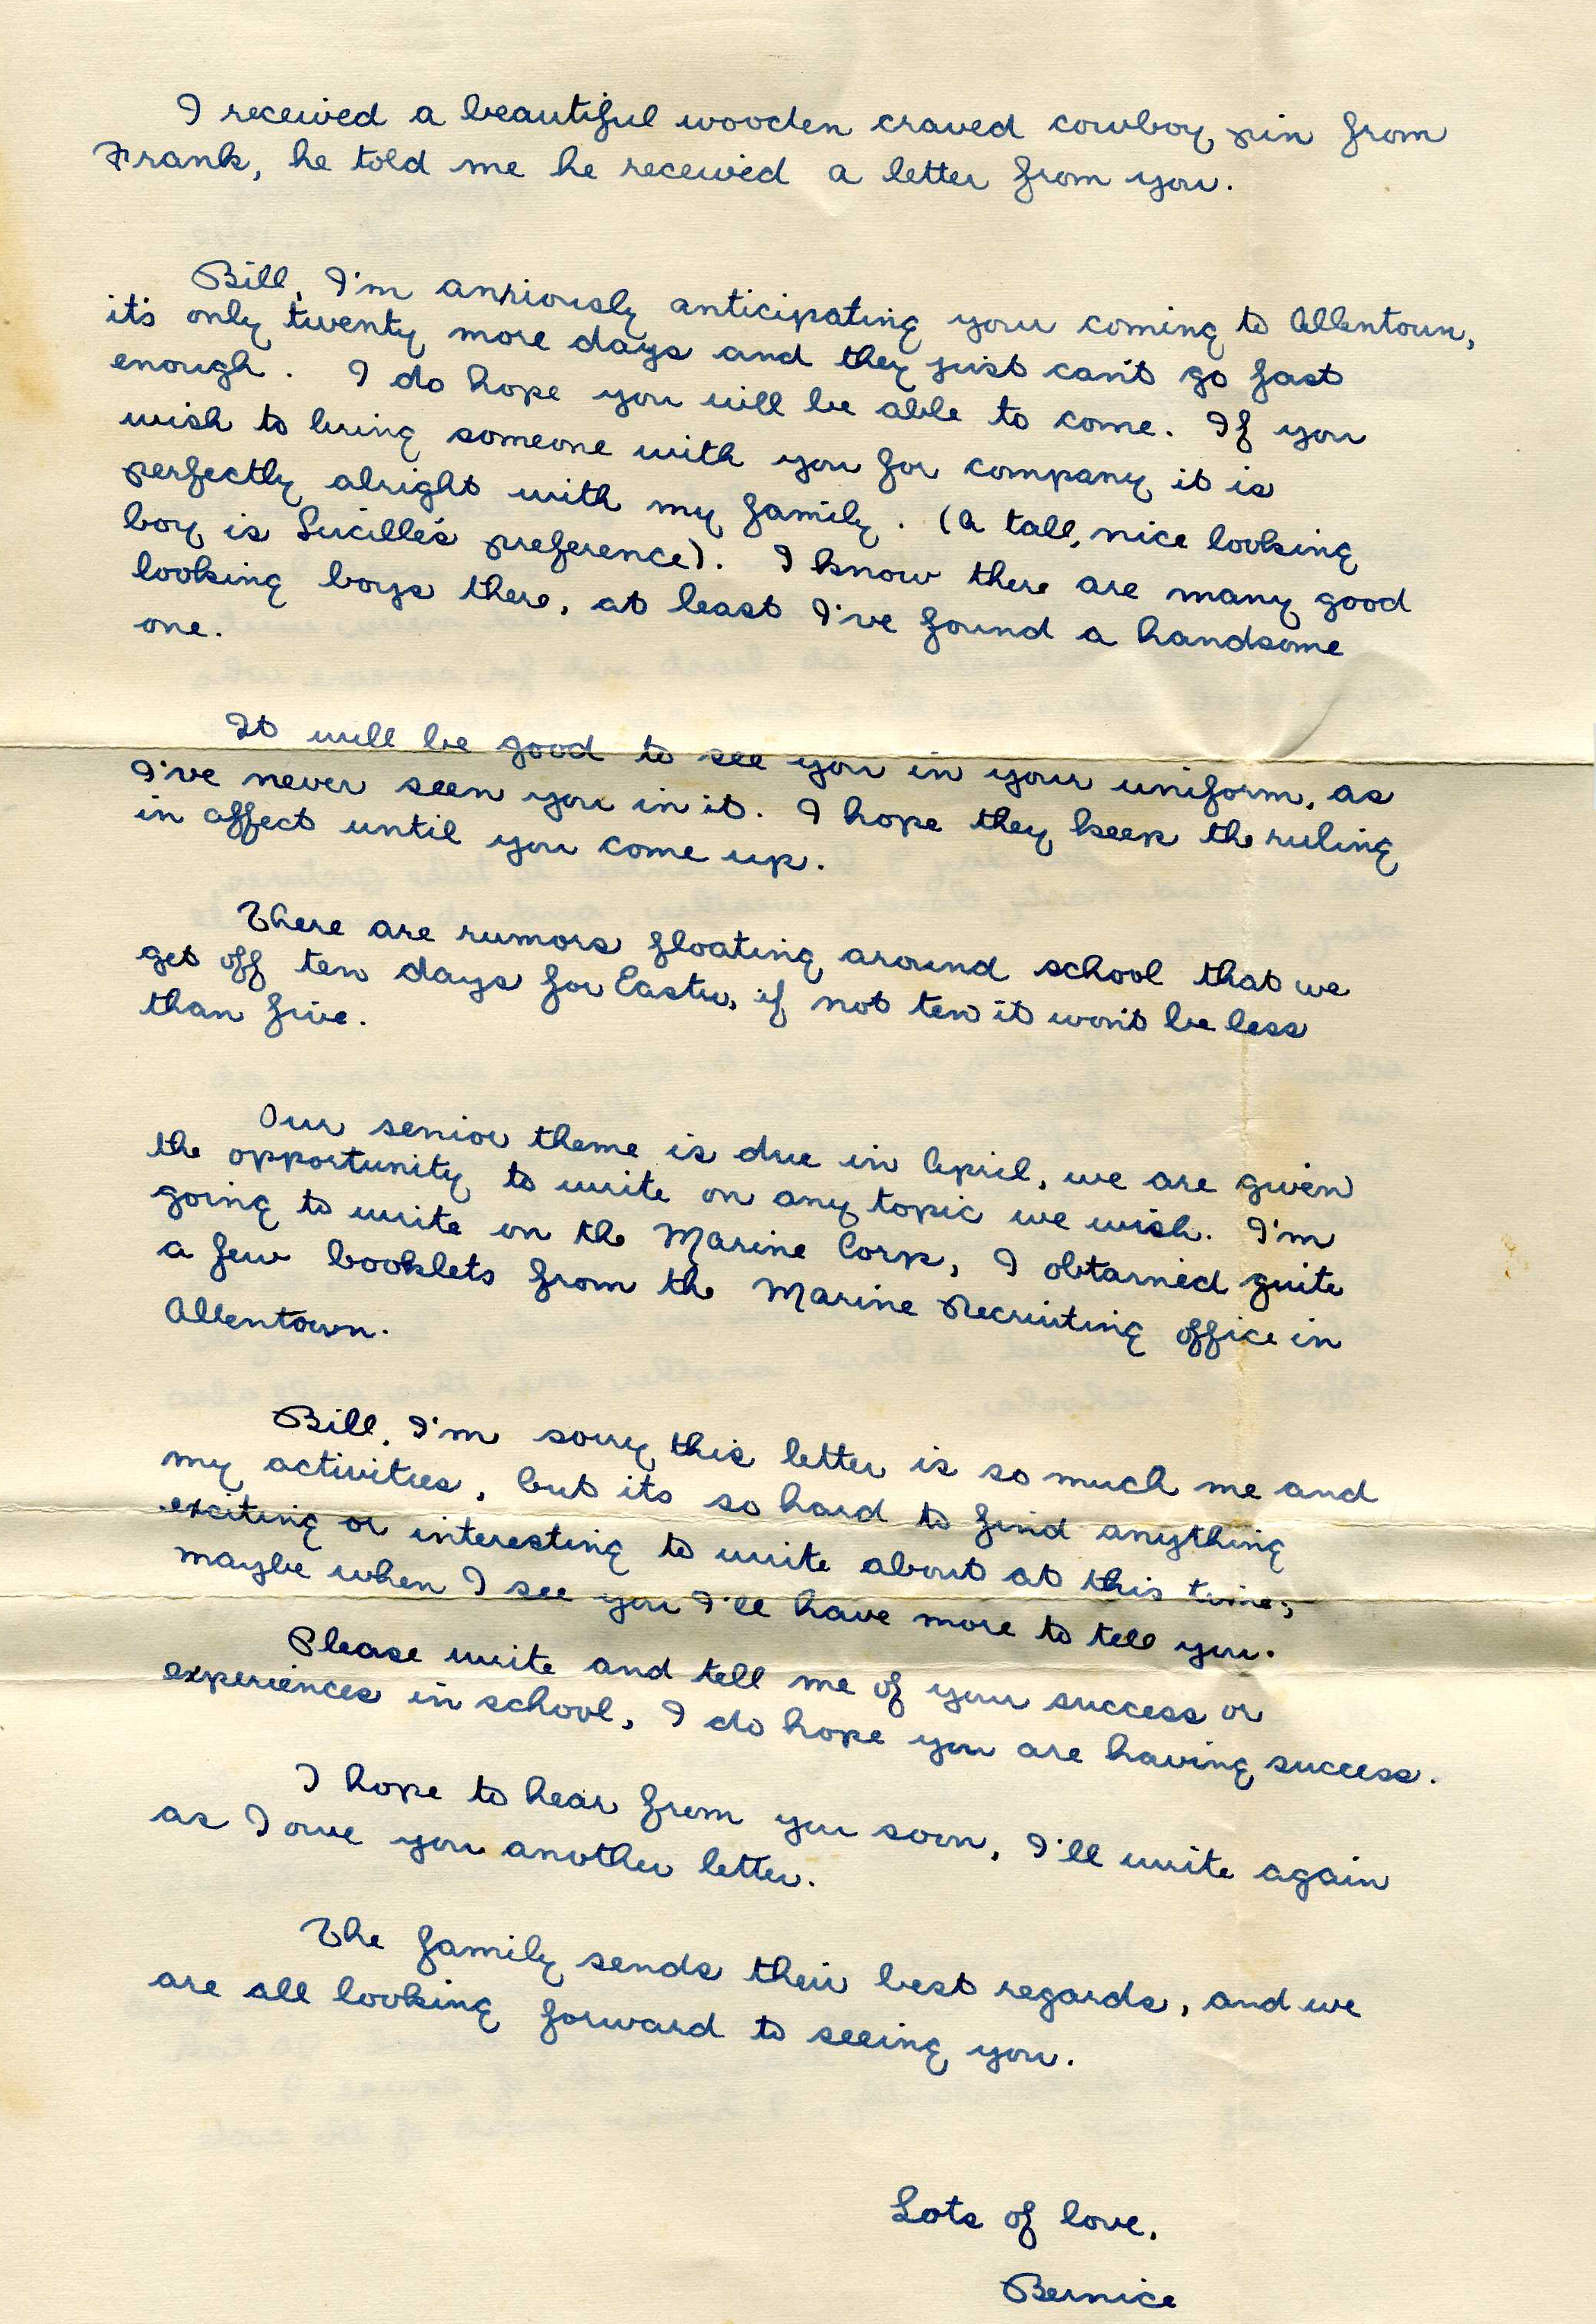 I received a beautiful wooden craved cowboy pin from
Frank, he told me he received a letter from you.
Bill, I'm anxiously anticipating your coming to Allentown,
it's only twenty more days and they just can't go fast
enough. I do hope you will be able to come. If you
wish to bring someone with you for company it is
perfectly alright with my family. (A tall, nice looking
boy is Lucille's preference). I know there are many good
looking boys there, at least I've found a handsome
one.
It will be good to see you in your uniform, as
I've never seen you in it. I hope they keep the ruling
in affect until you come up.
There are rumors floating around school that we
get off ten days for Easter, if not ten it won't be less
than five.
Our senior theme is due in April, we are given
the opportunity to write on any topic we wish. I'm
going to write on the Marine Corp, I obtained quite
a few booklets from the Marine Recruiting office in
Allentown.
Bill, I'm sorry this letter is so much me and
my activities, but its so hard to find anything
exciting or interesting to write about at this time;
maybe when I see you I'll have more to tell you.
Please write and tell me of your success or
experiences in school, I do hope you are having success.
I hope to hear from you soon, I'll write again
as I owe you another letter.
The family sends their best regards, and we
are all looking forward to seeing you.
Lots of love,
Bernice